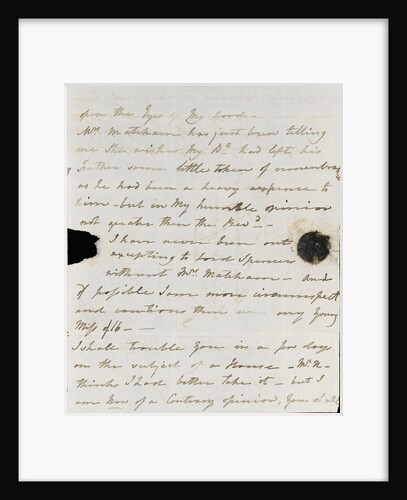 open the Eyes of My Lord -
Mrs. Matcham has just been telling
me She wishes My Br. had left his
Father some little token of remembrance
as he had been a heavy expence to
him - but in My humble opinion
not greater then the Revd. -
I have never been out
excepting to Lord Spencer
without Mrs. Matcham - and
if possible I am more circumspect
and cautious then any Young
Miss of 16 - -
I shall trouble You in a few days
on the subject of a House - Mr. M.
thinks I had better take it - but I
am Now of a Contrary opinion, You shall